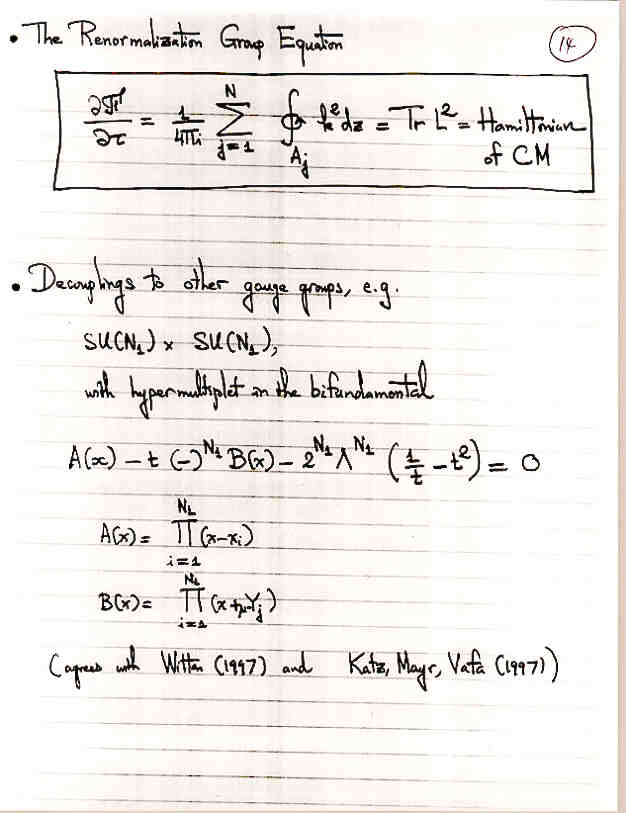 • The Renormalization Group Equation
14
∂ℱ/∂τ = 1/4πi ∑_{j=1}^{N} ∮_{A_j} k² dz = Tr L² = Hamiltonian
of CM
• Decouplings to other gauge groups, e.g.
SU(N₁) × SU(N₁),
with hypermultiplet in the bifundamental
A(x) − t (−)^{N₁} B(x) − 2^{N₁} Λ^{N₁} (1/t − t²) = 0
A(x) = ∏_{i=1}^{N₁} (x−x_i)
B(x) = ∏_{j=1}^{N₁} (x+μ−y_j)
(agrees with Witten (1997) and Katz, Mayr, Vafa (1997))